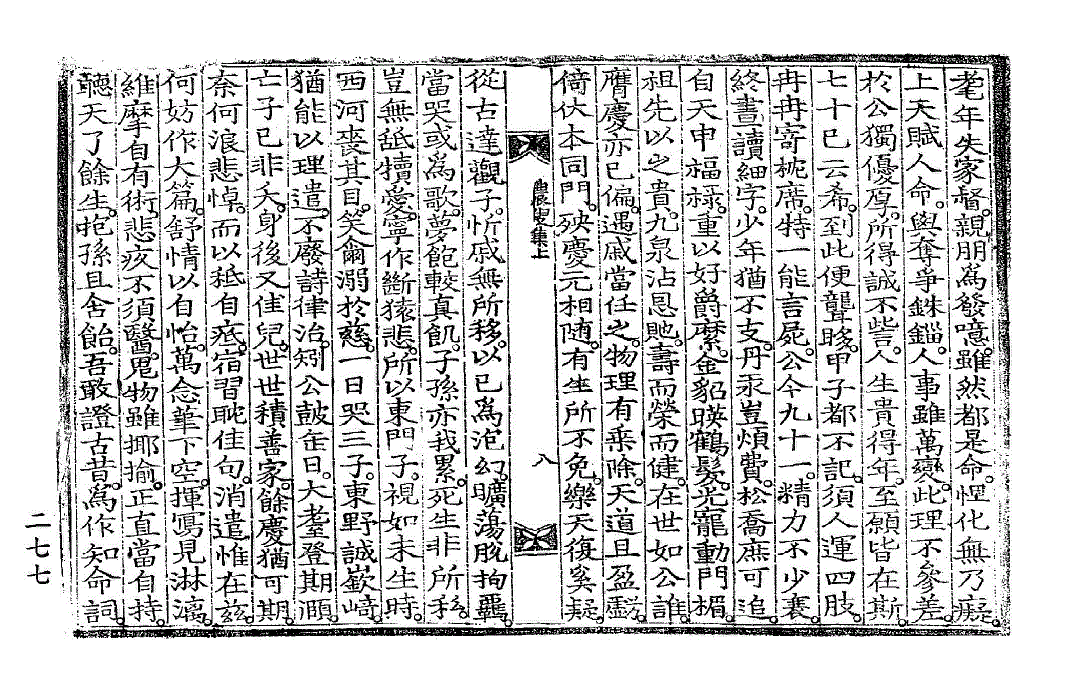 耄年失家督。親朋爲發噫。雖然都是命。怛化無乃癡。
上天賦人命。與奪爭銖錙。人事雖萬變。此理不參差。
於公獨優厚。所得誠不訾。人生貴得年。至願皆在斯。
七十已云希。到此便聾眵。甲子都不記。須人運四肢。
冉冉寄枕席。特一能言屍。公今九十一。精力不少衰。
終晝讀細字。少年猶不支。丹永豈煩費。松喬庶可追。
自天申福祿。重以好爵縻。金貂暎鶴髮。光寵動門楣。
祖先以之貴。九泉沾恩貤。壽而榮而健。在世如公誰。
膺慶亦已偏。遇戚當任之。物理有乘除。天道且盈虧。
倚伏本同門。殃慶元相隨。有生所不免。樂天復奚疑。
農叟集上
八
從古達觀子。忻戚無所移。以已爲泡幻。曠蕩脫拘羈。
當哭或爲歌。夢飽較眞飢。子孫亦我累。死生非所私。
豈無舐犢愛。寧作斷猿悲。所以東門子。視如未生時。
西河喪其目。笑爾溺於慈。一日哭三子。東野誠嶔崎。
猶能以理遣。不廢詩律治。矧公鼓缶日。大耋登期頤。
亡子已非夭。身後又佳兒。世世積善家。餘慶猶可期。
奈何浪悲悼。而以秪自疧。宿習耽佳句。消遣惟在玆。
何妨作大篇。舒情以自怡。萬念筆下空。揮寫見淋漓。
維摩自有術。悲疚不須醫。鬼物雖揶揄。正直當自持。
聽天了餘生。抱孫且含飴。吾敢證古昔。爲作知命詞。
二七七